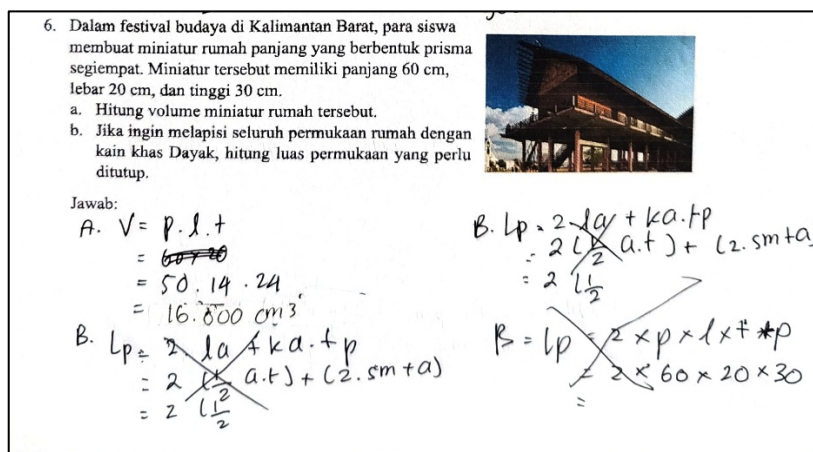 6. Dalam festival budaya di Kalimantan Barat, para siswa
membuat miniatur rumah panjang yang berbentuk prisma
segiempat. Miniatur tersebut memiliki panjang 60 cm,
lebar 20 cm, dan tinggi 30 cm.
a. Hitung volume miniatur rumah tersebut.
b. Jika ingin melapisi seluruh permukaan rumah dengan
kain khas Dayak, hitung luas permukaan yang perlu
ditutup.
Jawab:
A. V = p.l.t
= 60 × 20
= 50 . 14 . 24
= 16.800 cm³
B. Lp = 2. la + ka. tp
= 2 (1/2 a.t) + (2. sm+a)
= 2 (1/2
B. Lp = 2 la + ka.tp
= 2 (1/2 a.t) + (2. sm+a
= 2 (1/2
B = lp = 2 × p × l × t * p
= 2 × 60 × 20 × 30
=